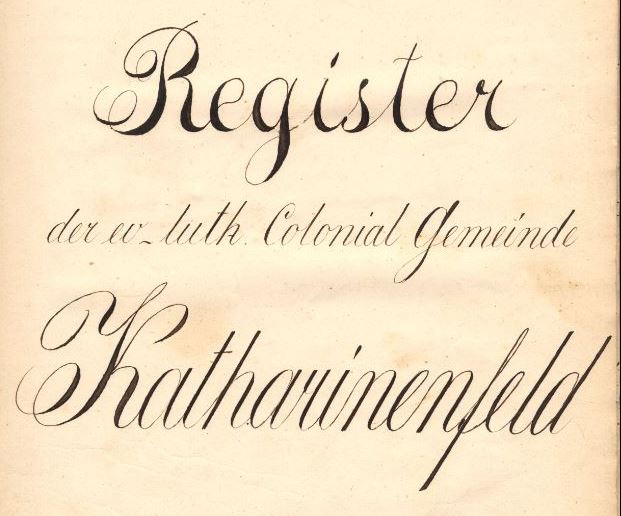 Register
der ev-luth. Colonial Gemeinde
Katharinenfeld